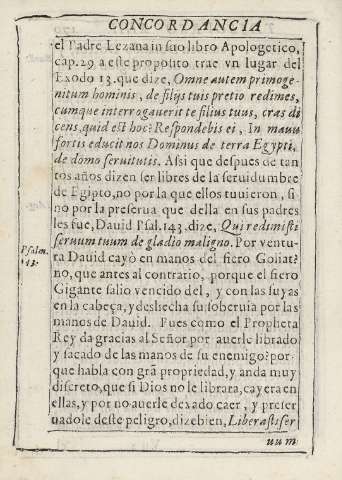 CONCORDANCIA
el Padre Lezana in suo libro Apologetico,
cap. 29 a este proposito trae vn lugar del
Exodo 13. que dize, Omne autem primoge-
nitum hominis, de filijs tuis pretio redimes,
cumque interrogauerit te filius tuus, cras di
cens, quid est hoc? Respondebis ei, In manu
fortis educit nos Dominus de terra Egypti,
de domo seruitutis. Assi que despues de tan
tos años dizen ser libres de la seruidumbre
de Egipto, no por la que ellos tuuieron, si
no por la preserua que della en sus padres
les fue, Dauid Psal. 143. dize, Qui redimisti
seruum tuum de gladio maligno. Por ventu
Psalm.
143.
ra Dauid cayò en manos del fiero Goliat?
no, que antes al contrario, porque el fiero
Gigante salio vencido del, y con las suyas
en la cabeça, y deshecha su soberuia por las
manos de Dauid. Pues como el Propheta
Rey da gracias al Señor por auerle librado
y sacado de las manos de su enemigo? por
que habla con grã propriedad, y anda muy
discreto, que si Dios no le librara, cayera en
ellas, y por no auerle dexado caer, y preser
uadole deste peligro, dize bien, Liberasti ser
uum